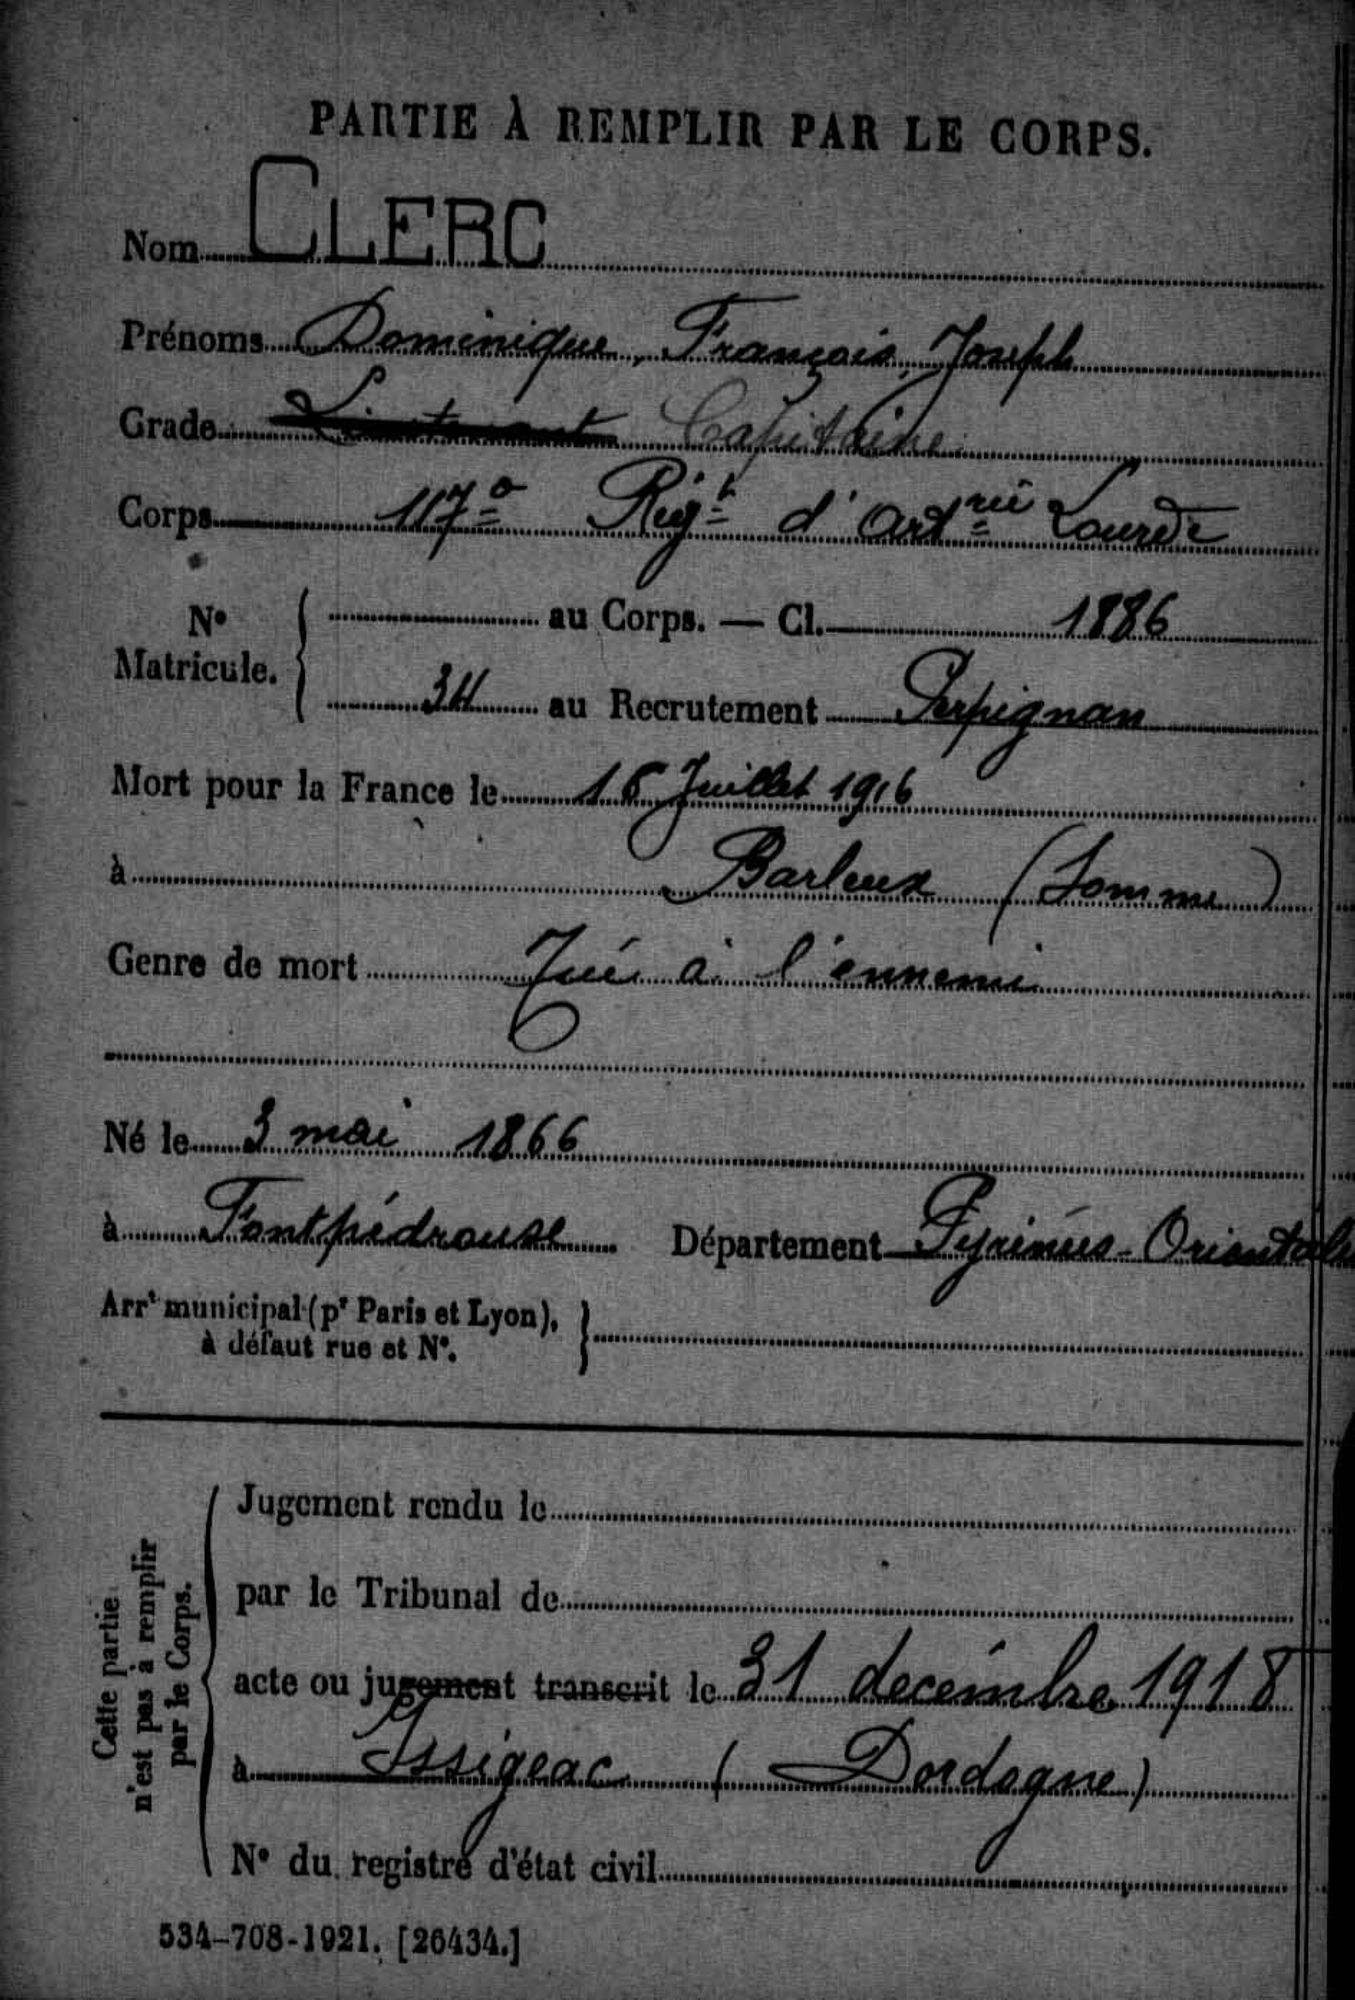 PARTIE À REMPLIR PAR LE CORPS.
Nom CLERC
Prénoms Dominique, François, Joseph
Grade Lieutenant Capitaine
Corps 117e Régt d'Artrie Lourde
N° Matricule. { au Corps. — Cl. 1886
34 au Recrutement Perpignan
Mort pour la France le 16 Juillet 1916
à Barleux (Somme)
Genre de mort Tué à l'ennemi
Né le 3 mai 1866
à Fontpédrouse Département Pyrénées-Orientales
Arrt municipal (pr Paris et Lyon), }
à défaut rue et N°.
Cette partie n'est pas à remplir par le Corps.
Jugement rendu le
par le Tribunal de
acte ou jugement transcrit le 31 decembre 1918
à Issigeac (Dordogne)
N° du registre d'état civil
534-708-1921. [26434.]